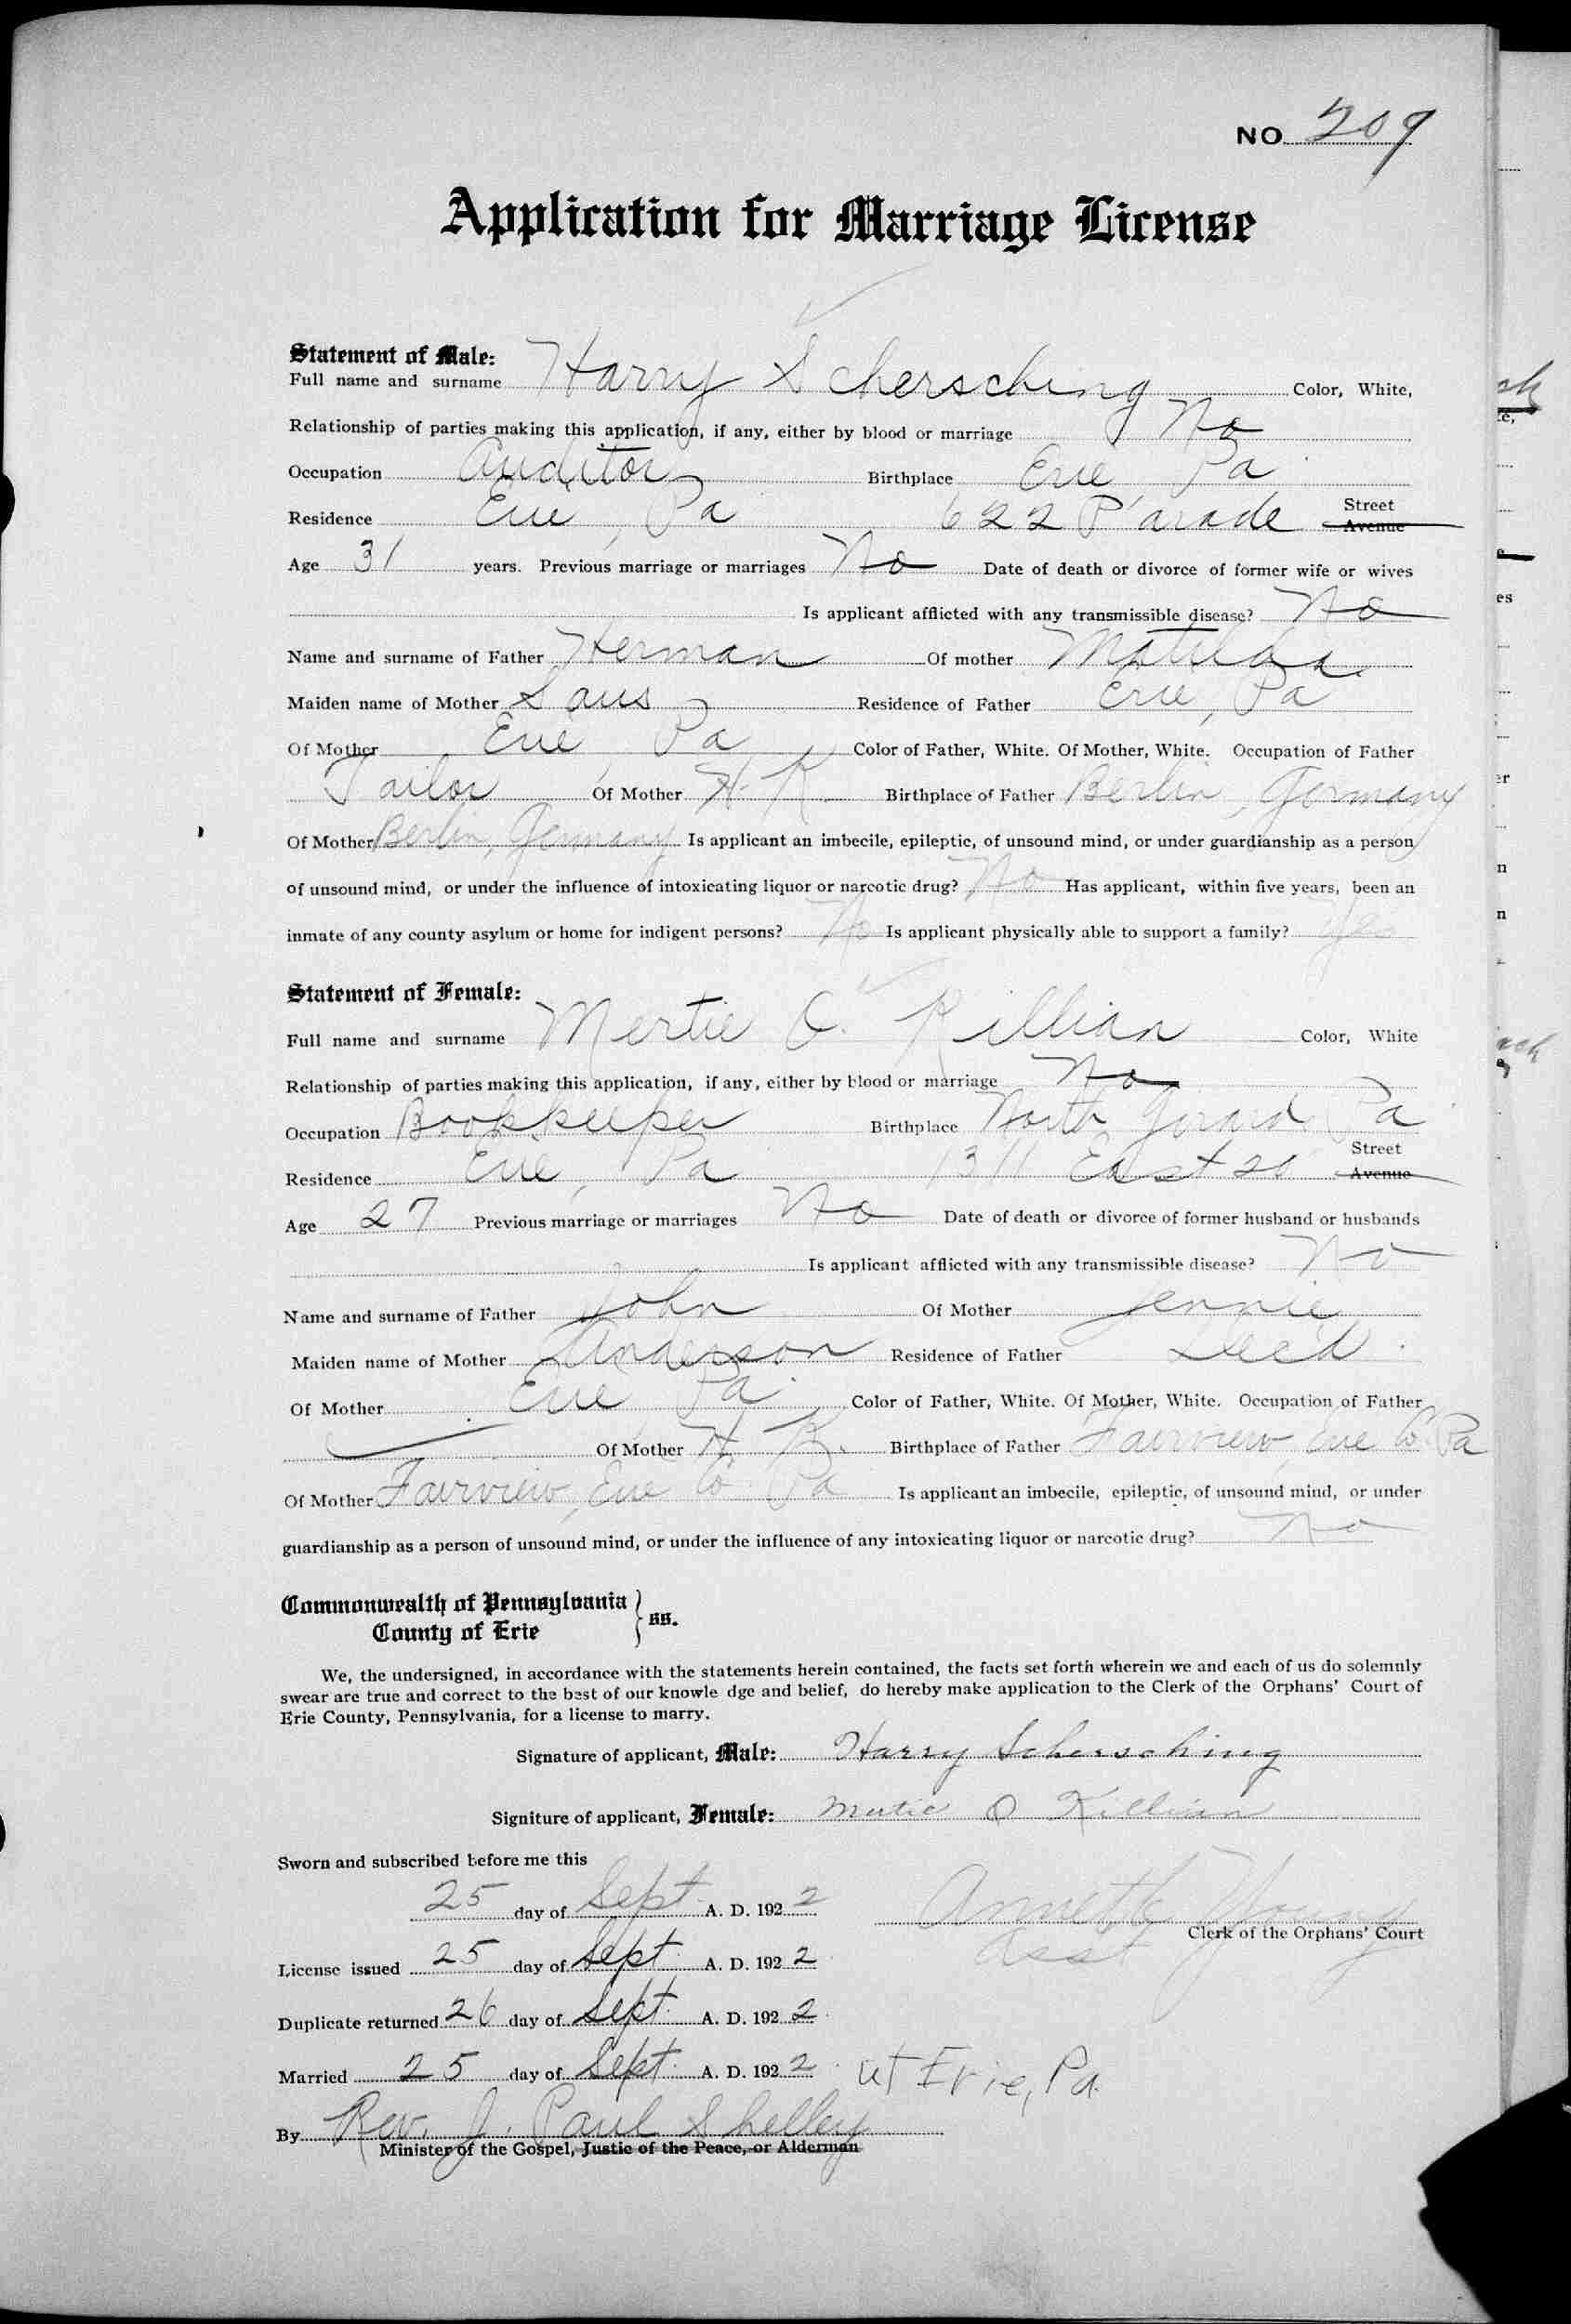 NO 209
Application for Marriage License
Statement of Male:
Full name and surname Harry Schersching Color, White,
Relationship of parties making this application, if any, either by blood or marriage No
Occupation Auditor Birthplace Erie, Pa
Residence Erie, Pa 622 Parade Street Avenue
Age 31 years. Previous marriage or marriages No Date of death or divorce of former wife or wives
Is applicant afflicted with any transmissible disease? No
Name and surname of Father Herman Of mother Matilda
Maiden name of Mother Saus Residence of Father Erie, Pa
Of Mother Erie, Pa Color of Father, White. Of Mother, White. Occupation of Father
Tailor Of Mother H. K. Birthplace of Father Berlin, Germany
Of Mother Berlin, Germany Is applicant an imbecile, epileptic, of unsound mind, or under guardianship as a person
of unsound mind, or under the influence of intoxicating liquor or narcotic drug? No Has applicant, within five years, been an
inmate of any county asylum or home for indigent persons? No Is applicant physically able to support a family? Yes
Statement of Female:
Full name and surname Mertie O. Killian Color, White
Relationship of parties making this application, if any, either by blood or marriage No
Occupation Bookkeeper Birthplace North Girard, Pa
Residence Erie, Pa 1311 East 20 Street Avenue
Age 27 Previous marriage or marriages No Date of death or divorce of former husband or husbands
Is applicant afflicted with any transmissible disease? No
Name and surname of Father John Of Mother Jennie
Maiden name of Mother Anderson Residence of Father Dec'd.
Of Mother Erie, Pa. Color of Father, White. Of Mother, White. Occupation of Father
Of Mother H. K. Birthplace of Father Fairview, Erie Co. Pa
Of Mother Fairview, Erie Co. Pa Is applicant an imbecile, epileptic, of unsound mind, or under
guardianship as a person of unsound mind, or under the influence of any intoxicating liquor or narcotic drug? No
Commonwealth of Pennsylvania
County of Erie } ss.
We, the undersigned, in accordance with the statements herein contained, the facts set forth wherein we and each of us do solemnly
swear are true and correct to the best of our knowle dge and belief, do hereby make application to the Clerk of the Orphans' Court of
Erie County, Pennsylvania, for a license to marry.
Signature of applicant, Male: Harry Schersching
Signiture of applicant, Female: Mertie O Killian
Sworn and subscribed before me this
25 day of Sept. A. D. 1922 Annette Young
Clerk of the Orphans' Court
Asst
License issued 25 day of Sept. A. D. 1922
Duplicate returned 26 day of Sept. A. D. 1922
Married 25 day of Sept. A. D. 1922 at Erie, Pa.
By Rev. J. Paul Shelley
Minister of the Gospel, Justic of the Peace, or Alderman